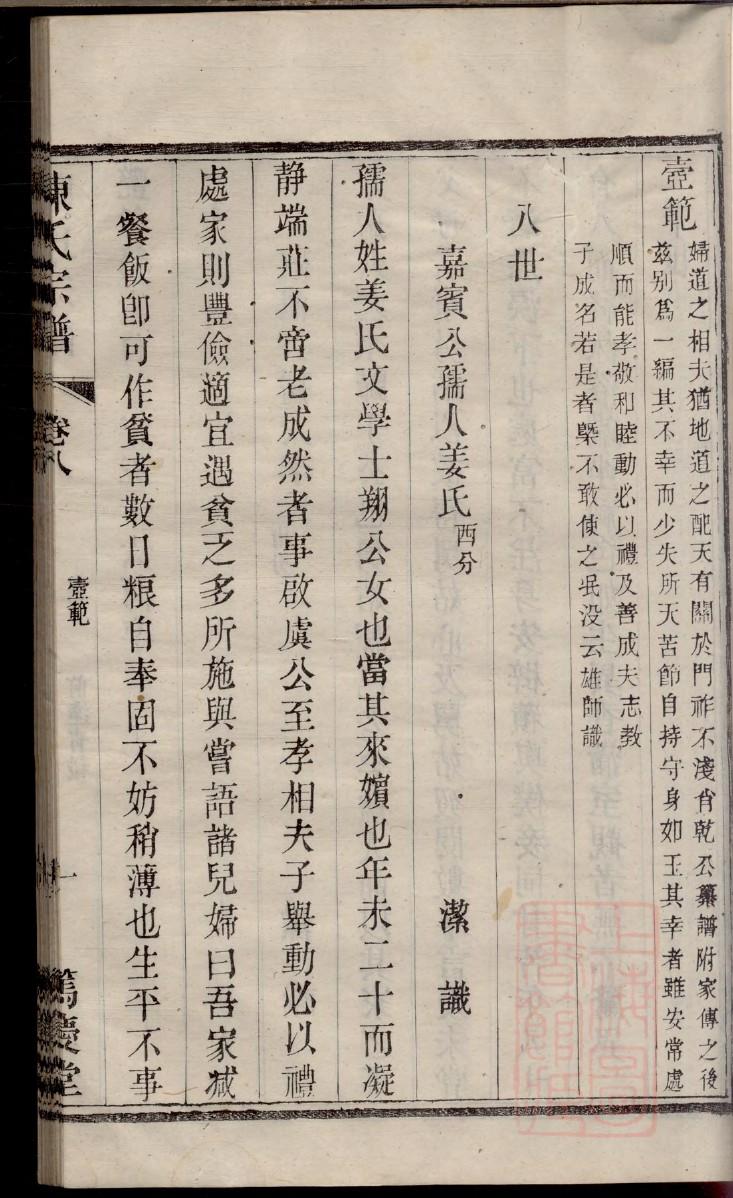 壼範
婦道之相夫猶地道之配天有關於門祚不淺肖乾公纂譜附家傳之後
茲别爲一編其不幸而少失所天苦節自持守身如玉其幸者雖安常處
順而能孝敬和睦動必以禮及善成夫志教
子成名若是者槩不敢使之泯没云雄師識
八世
嘉賓公孺人姜氏西分 潔識
孺人姓姜氏文學士翔公女也當其來嬪也年未二十而凝
静端莊不啻老成然者事啟虞公至孝相夫子舉動必以禮
處家則豐儉適宜遇貧乏多所施與嘗語諸兒婦曰吾家减
一餐飯卽可作貧者數日粮自奉固不妨稍薄也生平不事
陳氏宗譜 卷八 壼範 一 篤慶堂
上海圖書館藏